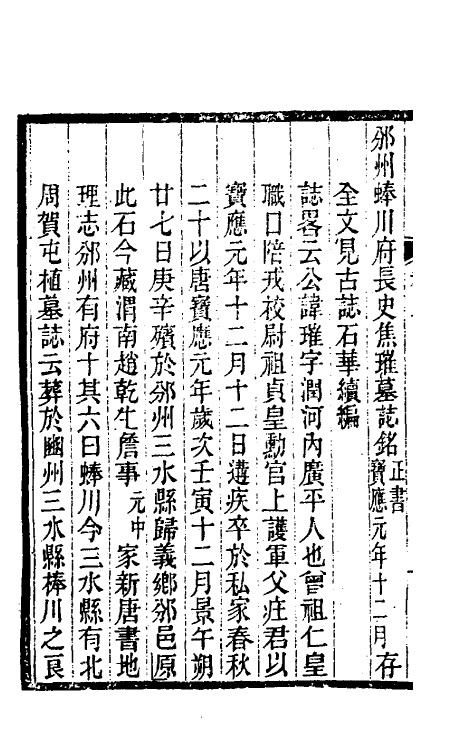 邠州蜯川府長史焦璀墓誌銘正書寶應元年十二月存
全文見古誌石華續編
誌畧云公諱璀字潤河內廣平人也曾祖仁皇
職口陪戎校尉祖貞皇勳官上護軍父庄君以
寶應元年十二月十二日遘疾卒於私家春秋
二十以唐寶應元年歲次壬寅十二月景午朔
廿七日庚辛殯於邠州三水縣歸義鄉邠邑原
此石今藏渭南趙乾生詹事元中家新唐書地
理志邠州有府十其六曰蜯川今三水縣有北
周賀屯植墓誌云葬於豳州三水縣棒川之良